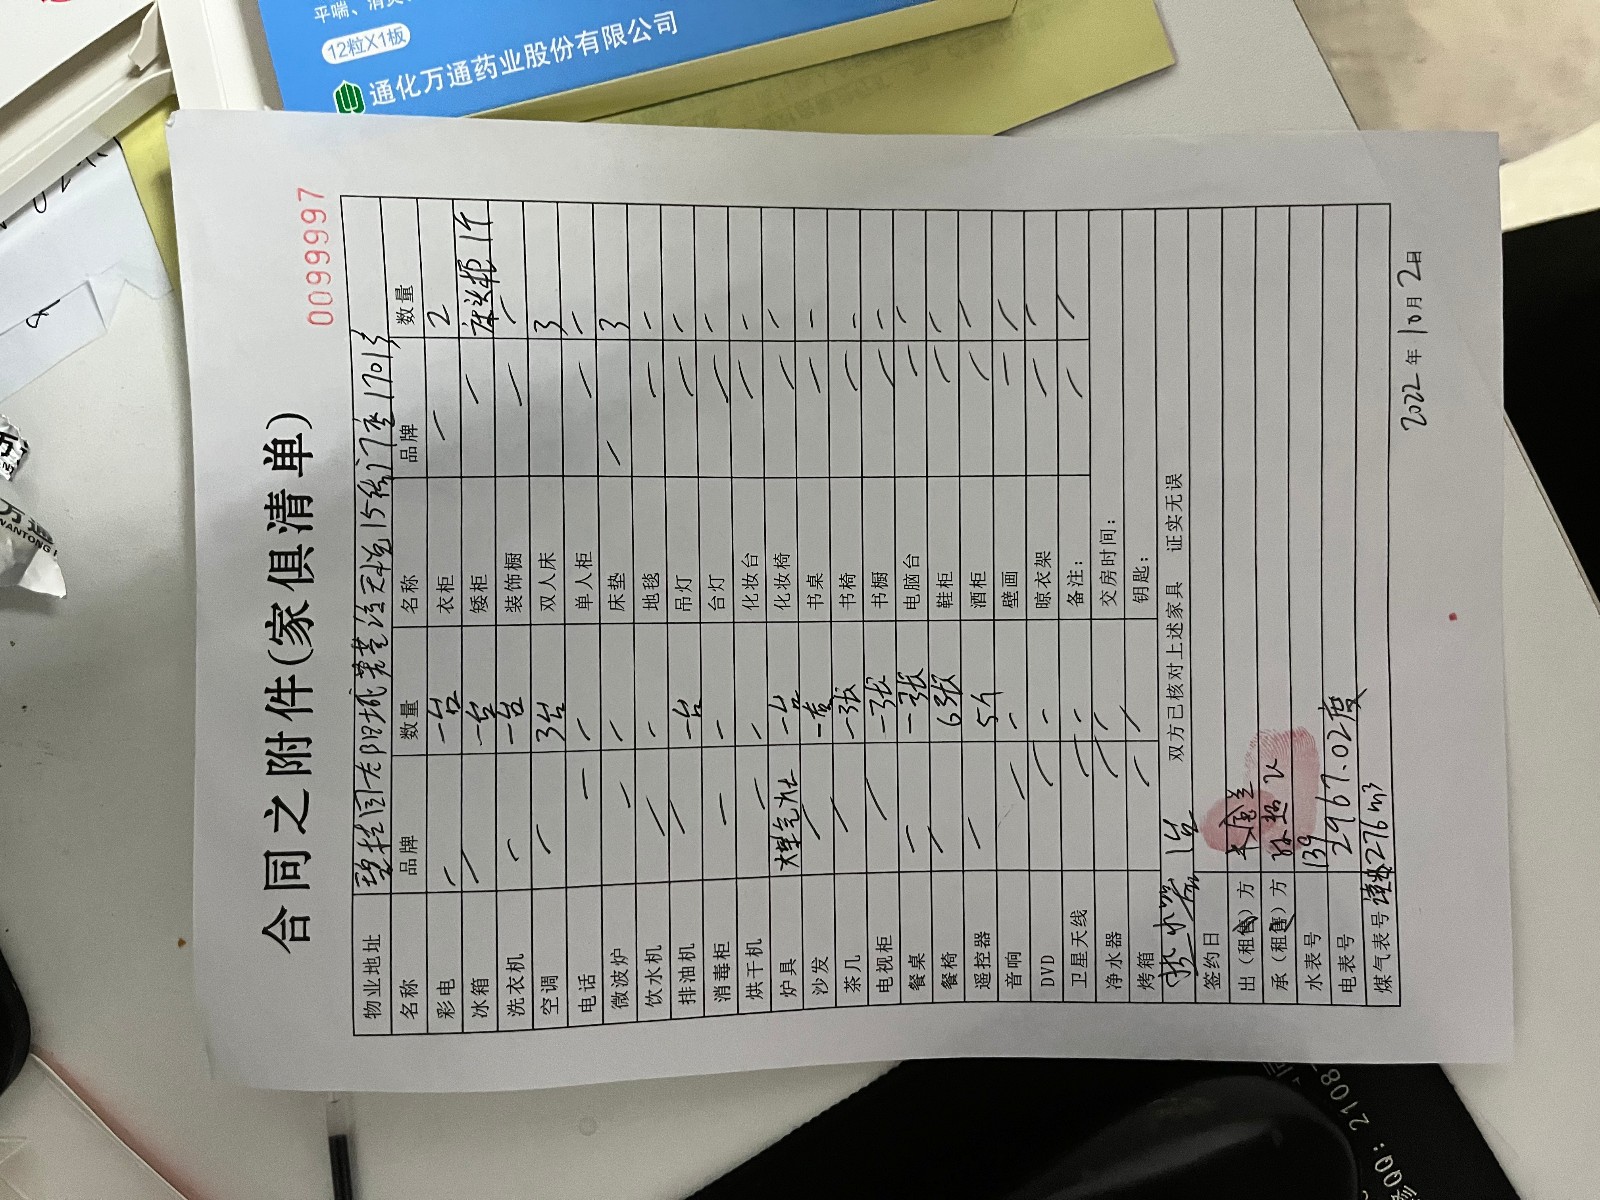 12粒X1板
通化万通药业股份有限公司
0099997
合同之附件(家俱清单)
物业地址 碧桂园太阳城 15 门座1701号
名称 品牌 数量 名称 品牌 数量
彩电 / 一台 衣柜 / 2
冰箱 / 一台 矮柜 / 床头柜1个
洗衣机 / 一台 装饰橱 / /
空调 / 3台 双人床 3
电话 / / 单人柜 / /
微波炉 / / 床垫 / 3
饮水机 / / 地毯 / /
排油机 / 一台 吊灯 / /
消毒柜 / / 台灯 / /
烘干机 / / 化妆台 / /
炉具 一台 化妆椅 / /
沙发 / 一套 书桌 / /
茶几 / 一张 书椅 / /
电视柜 / 一张 书橱 / /
餐桌 / 一张 电脑台 / /
餐椅 / 6张 鞋柜 / /
遥控器 / 5个 酒柜 / /
音响 / / 壁画 / /
DVD / / 晾衣架 / /
卫星天线 / / 备注: / /
净水器 / / 交房时间:
烤箱 / / 钥匙:
热水器 1台 双方已核对上述家具 证实无误
签约日
出(租售)方
承(租售)方
水表号 139
电表号 2967.02度
煤气表号 读数276m3
2022年10月2日
WANTONG
QQ: 2108